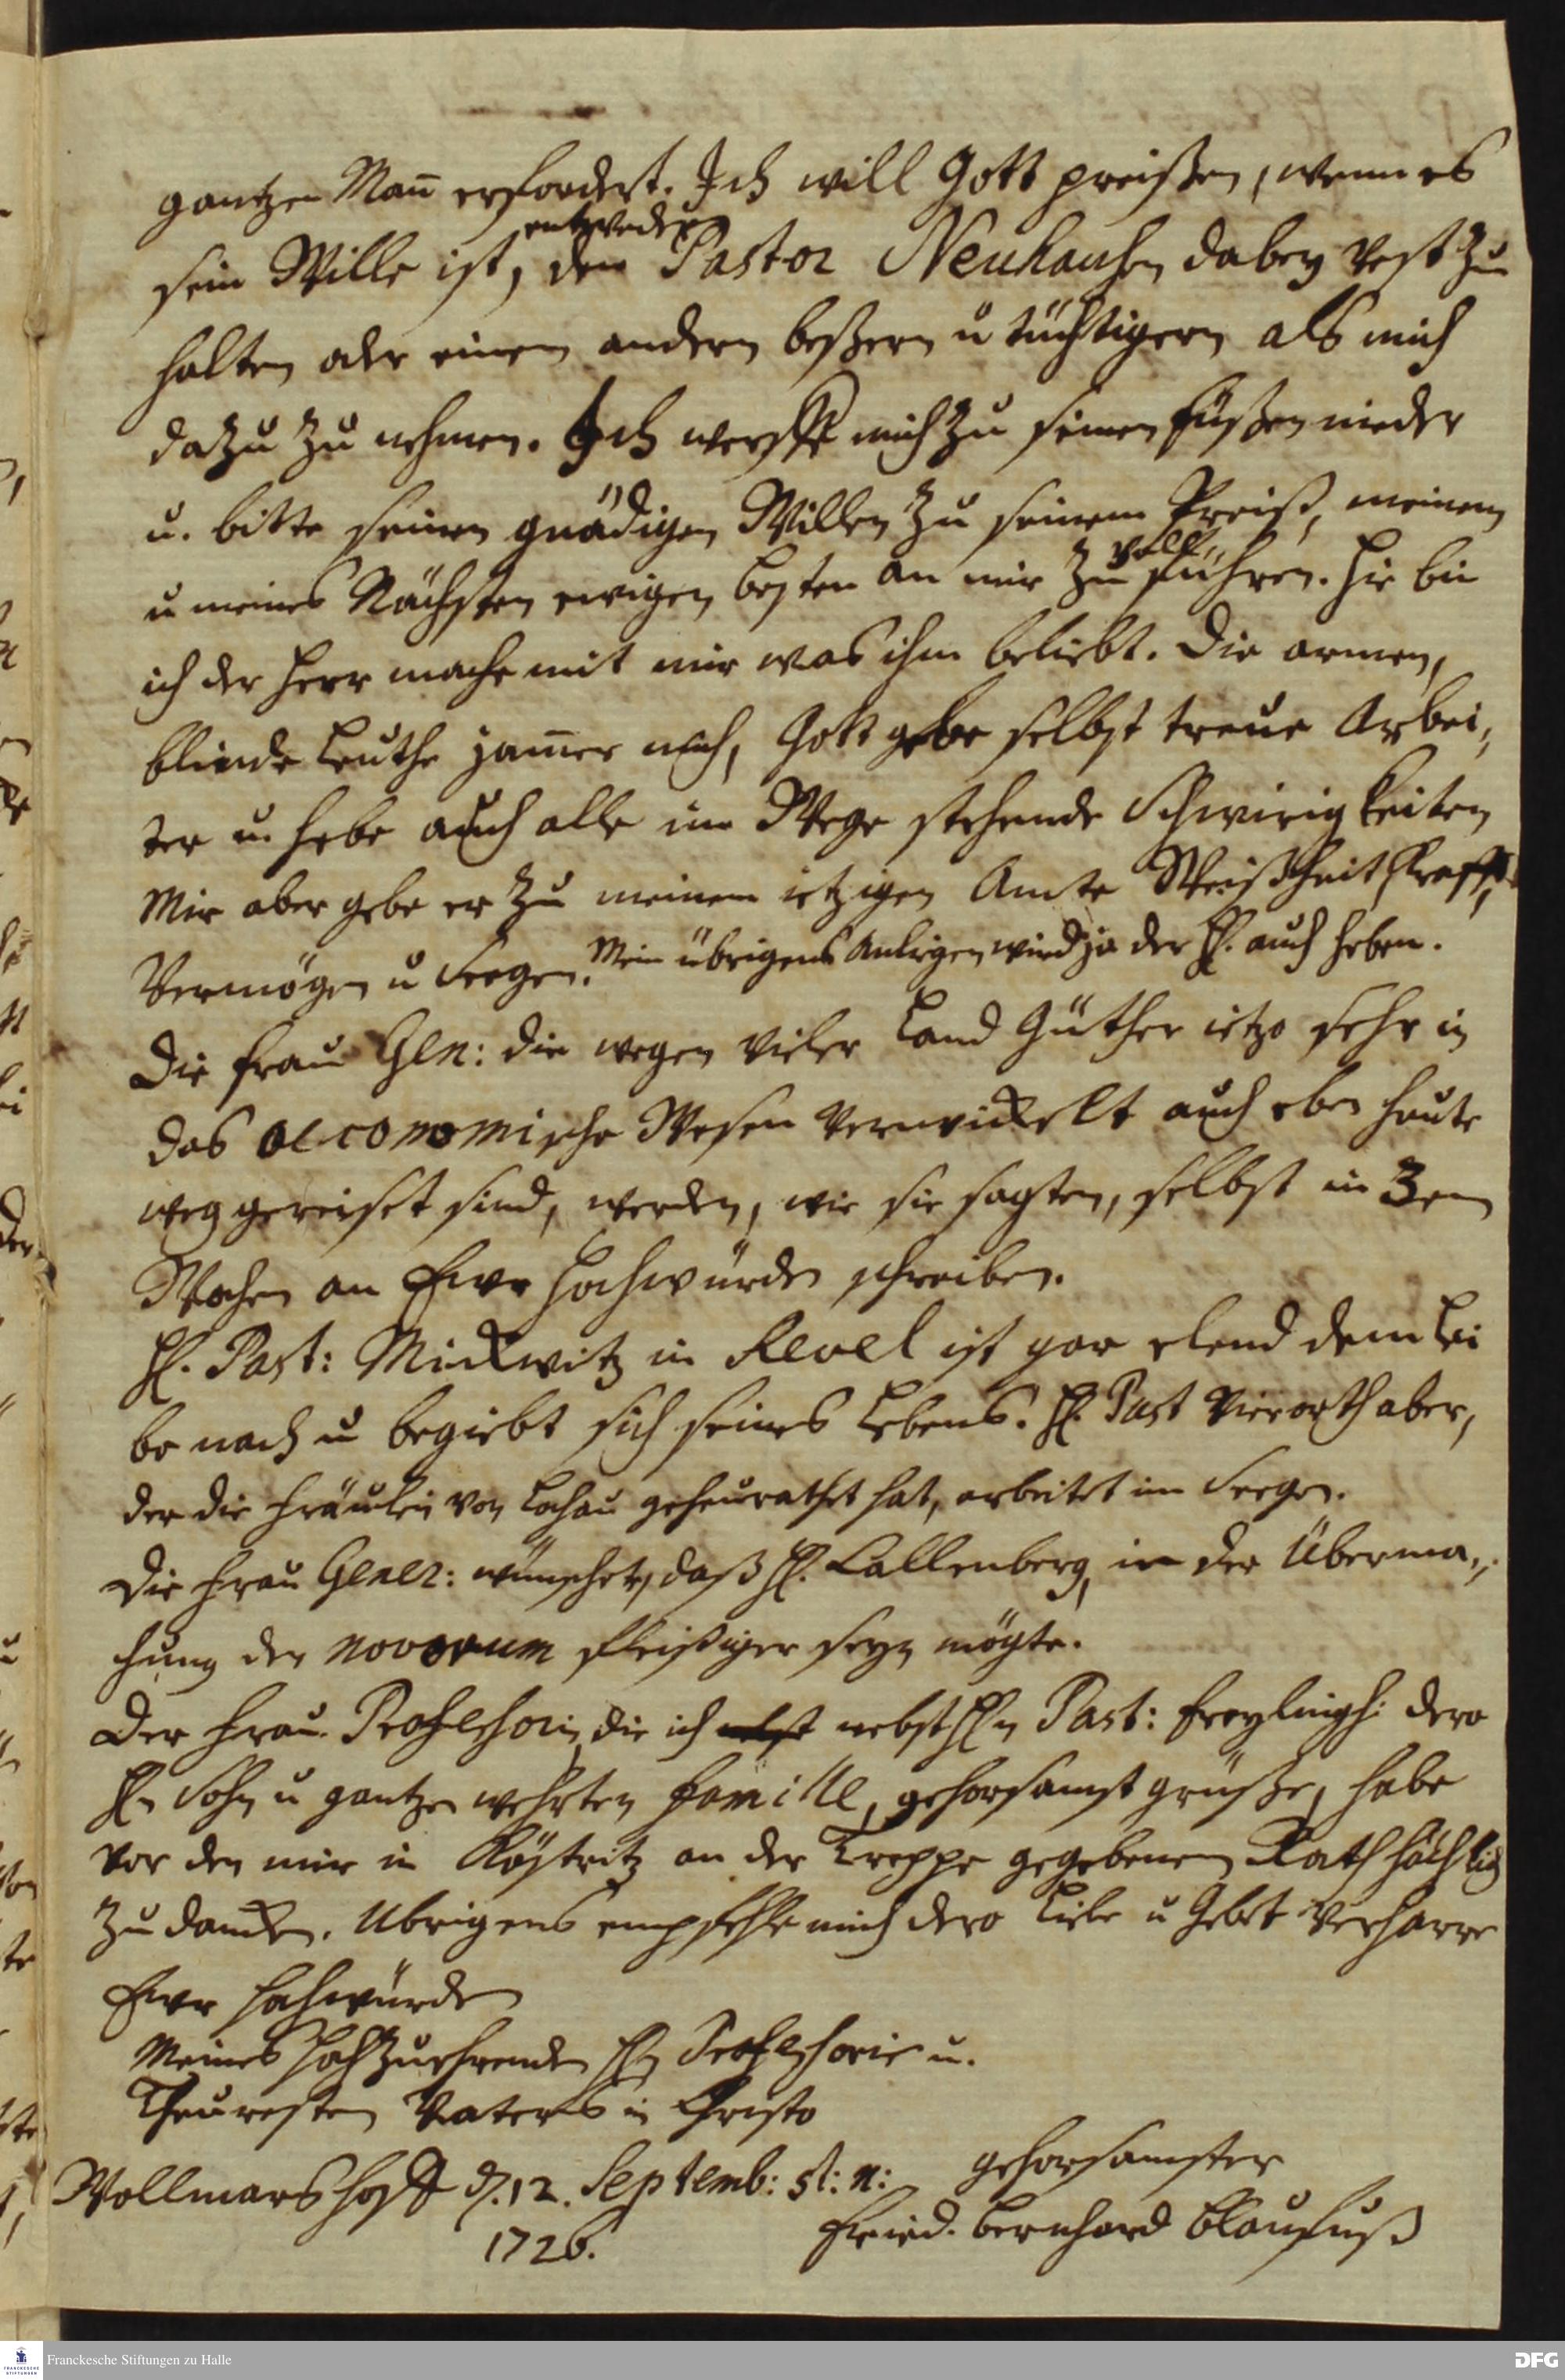 gantzen Mañ erfordert. Ich will Gott preißen, wenn es
sein Wille ist, entweder den Pastor Neuhausen dabey vest zu
halten oder einen andern beßern u tüchtigern als mich
dazu zu nehmen. Ich werffe mich zu seinen füßen nieder
u. bitte seinen gnädigen Willen zu seinem Preiß, meinem
u meines Nächsten ewigen besten an mir zu vollführen. Hie bin
ich der Herr mache mit mir was ihm beliebt. Die armen,
blinde Leuthe jam̃er mich, Gott gebe selbst treue Arbei-
ter u. hebe auch alle im Wege stehende Schwirigkeiten
Mir aber gebe er zu meinem ietzigen Amte Weißheit, Krafft,
Vermögen u Seegen. Mein übrigens Anligen wird ja der H. auch heben.
Die frau Gen: die wegen vieler Land Güther ietzo sehr in
das oeconomische Wesen verwickelt auch eben heute
weg gereiset sind, werden, wie sie sagten, selbst in 3en
Wochen an Ewr Hochwürden schreiben.
H. Past: Mickwitz in Revel ist gar elend dem Lei
be nach u begiebt sich seines Lebens. H. Past Vierorth aber,
der die Fräulein von Lochau geheurathet hat, arbeitet im Seegen.
Die Frau Gener: wünschet, daß H. Callenberg, in der Überma-
chung der novorum fleißiger seyn mögte.
Der Frau Professorin, die ich nebst nebst Hn Past: Freylingh: dero
Hn Sohn u gantzen wehrten familie, gehorsamst grüße, habe
vor den mir in Köstritz an der Treppe gegebenen Rath höchlich
zu dancken. Ubrigens empfehle mich dero Liebe u Gebet verharre
Ewr Hochwürden
Meines Hochzuehrenden Hn Professoris u.
Theuresten Vaters in Christo
Wollmarshoff d. 12. Septemb: st: n:
gehorsamster
1726.
Fried. Bernhard Blaufuß
Franckesche Stiftungen zu Halle
FRANCKESCHE STIFTUNGEN
DFG